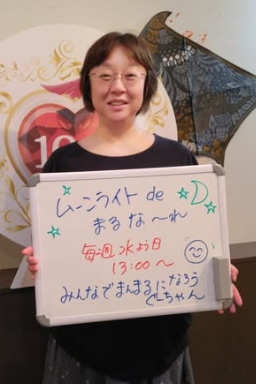 ムーンライト de
まるな～れ
毎週水よう日
13:00～
みんなでまんまるになろう
ぐーちゃん
10